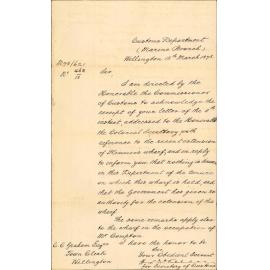 Customs Department
(Marine Branch)
Wellington 15th March 1878
Sir
I am directed by the
Honorable the Commissioner
of Customs to acknowledge the
receipt of your letter of the
instant, addressed to the Honorable
the Colonial Secretary with
reference to the recent extension
of wharf, and in reply
to inform you that nothing is known
in this Department of the tenure
on which this wharf is held, and
that the Government has given no
authority for the extension of the
wharf.
The same remarks apply also
to the wharf in the occupation of
Mr Compton.
I have the honor to be
Sir
Your Obedient Servant
for Secretary of Customs
C. C. Graham Esqre
Town Clerk
Wellington